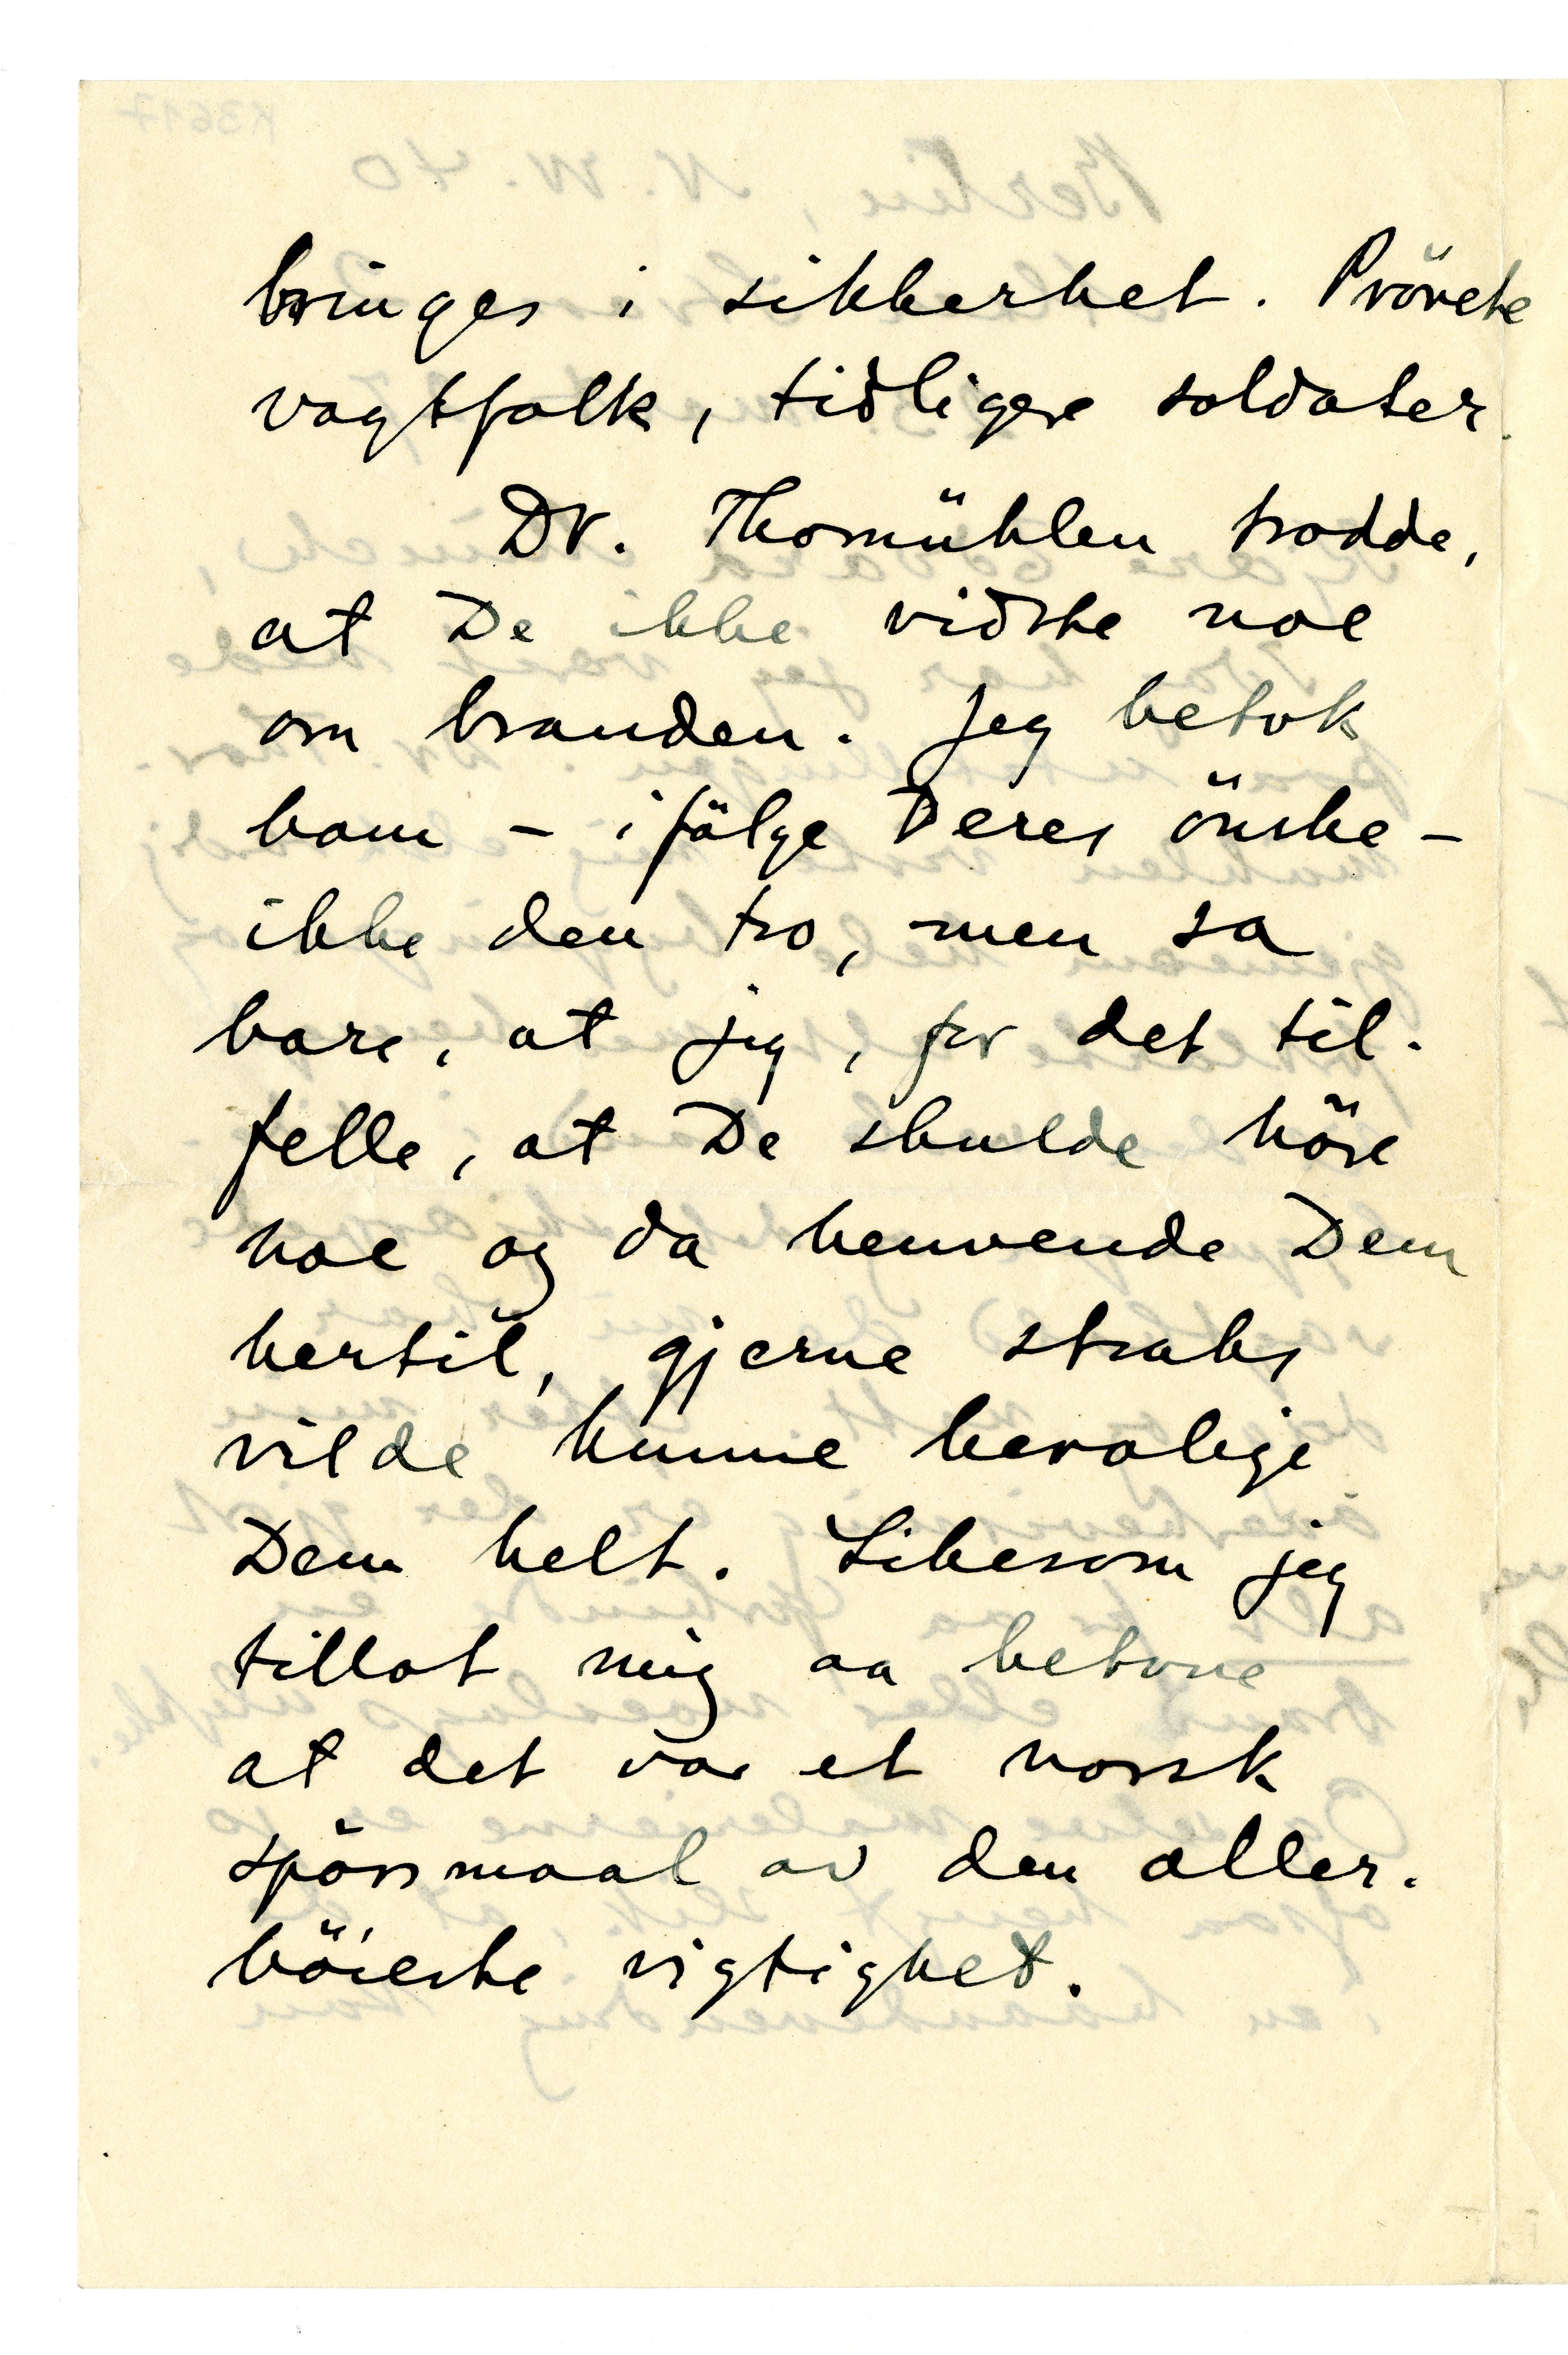 bringes i sikkerhet. Prövete
vagtfolk, tidligere soldater.
Dr. Thormühlen trodde,
at De ikke vidste noe
om branden. Jeg betok
ham – ifölge Deres önske –
ikke den tro, men sa
bare, at jeg, for det til-
felle, at De skulde höre
noe og da henvende Dem
hertil, gjerne straks
vilde kunne berolige
Dem helt. Likesom jeg
tillot mig aa betone
at det var et norsk
spörsmaal av den aller-
höieste vigtighet.